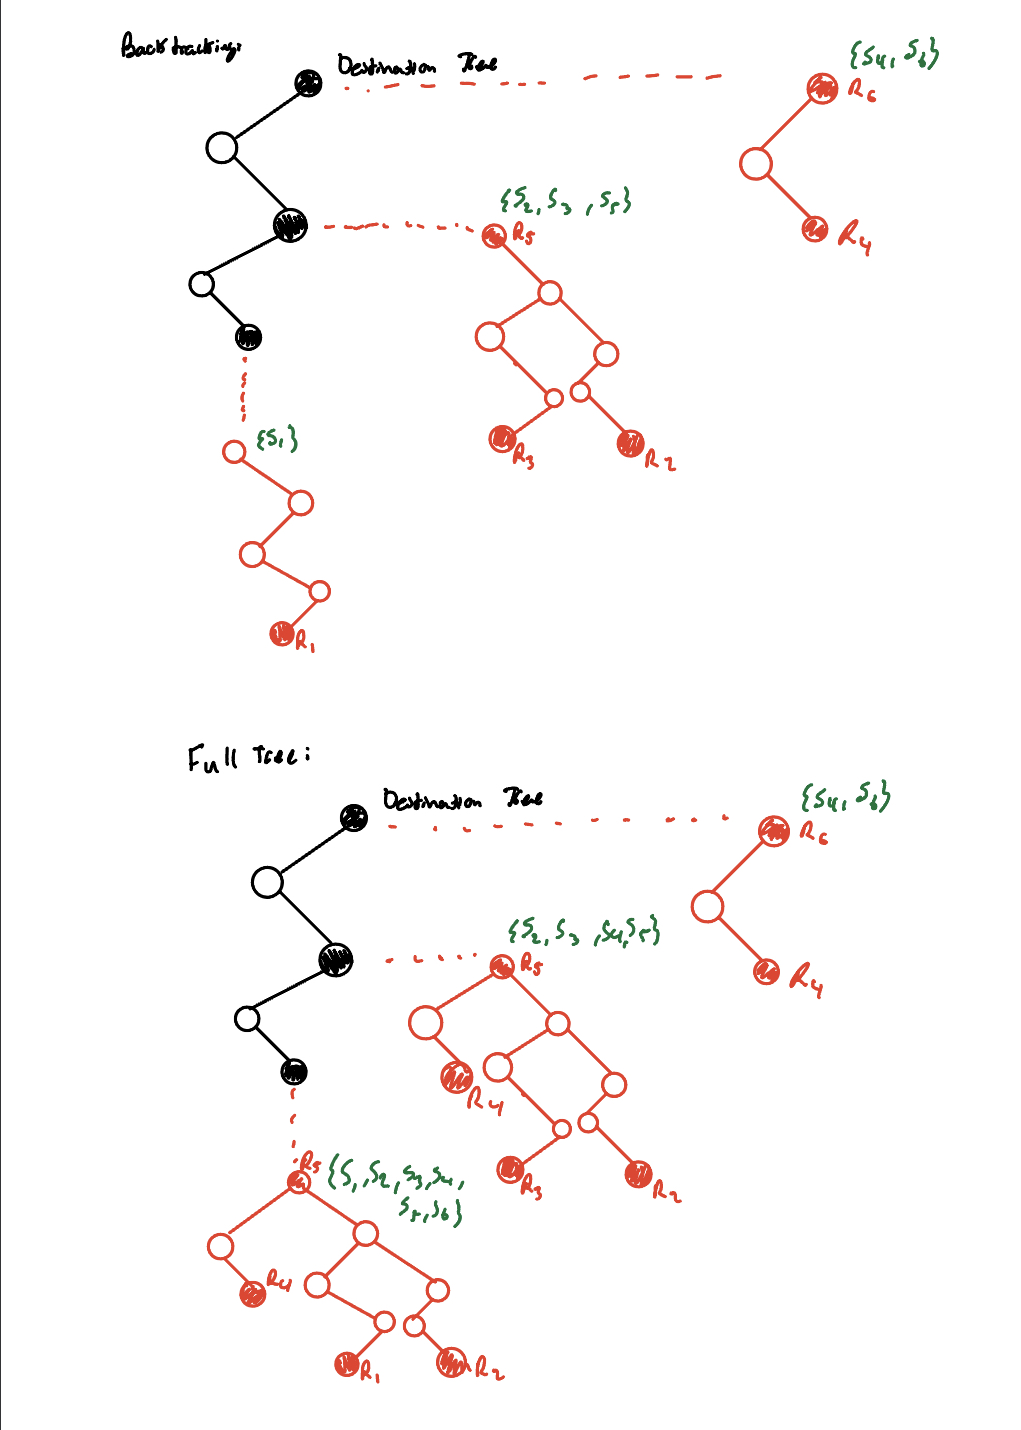 Backtracking:
Destination Tree
{S4, S6}
R6
R4
{S2, S3, S5}
R5
R3
R2
{S1}
R1
Full Tree:
Destination Tree
{S4, S6}
R6
R4
{S2, S3, S4, S5}
R5
R4
R3
R2
R5
{S1, S2, S3, S4,
S5, S6}
R4
R1
R2